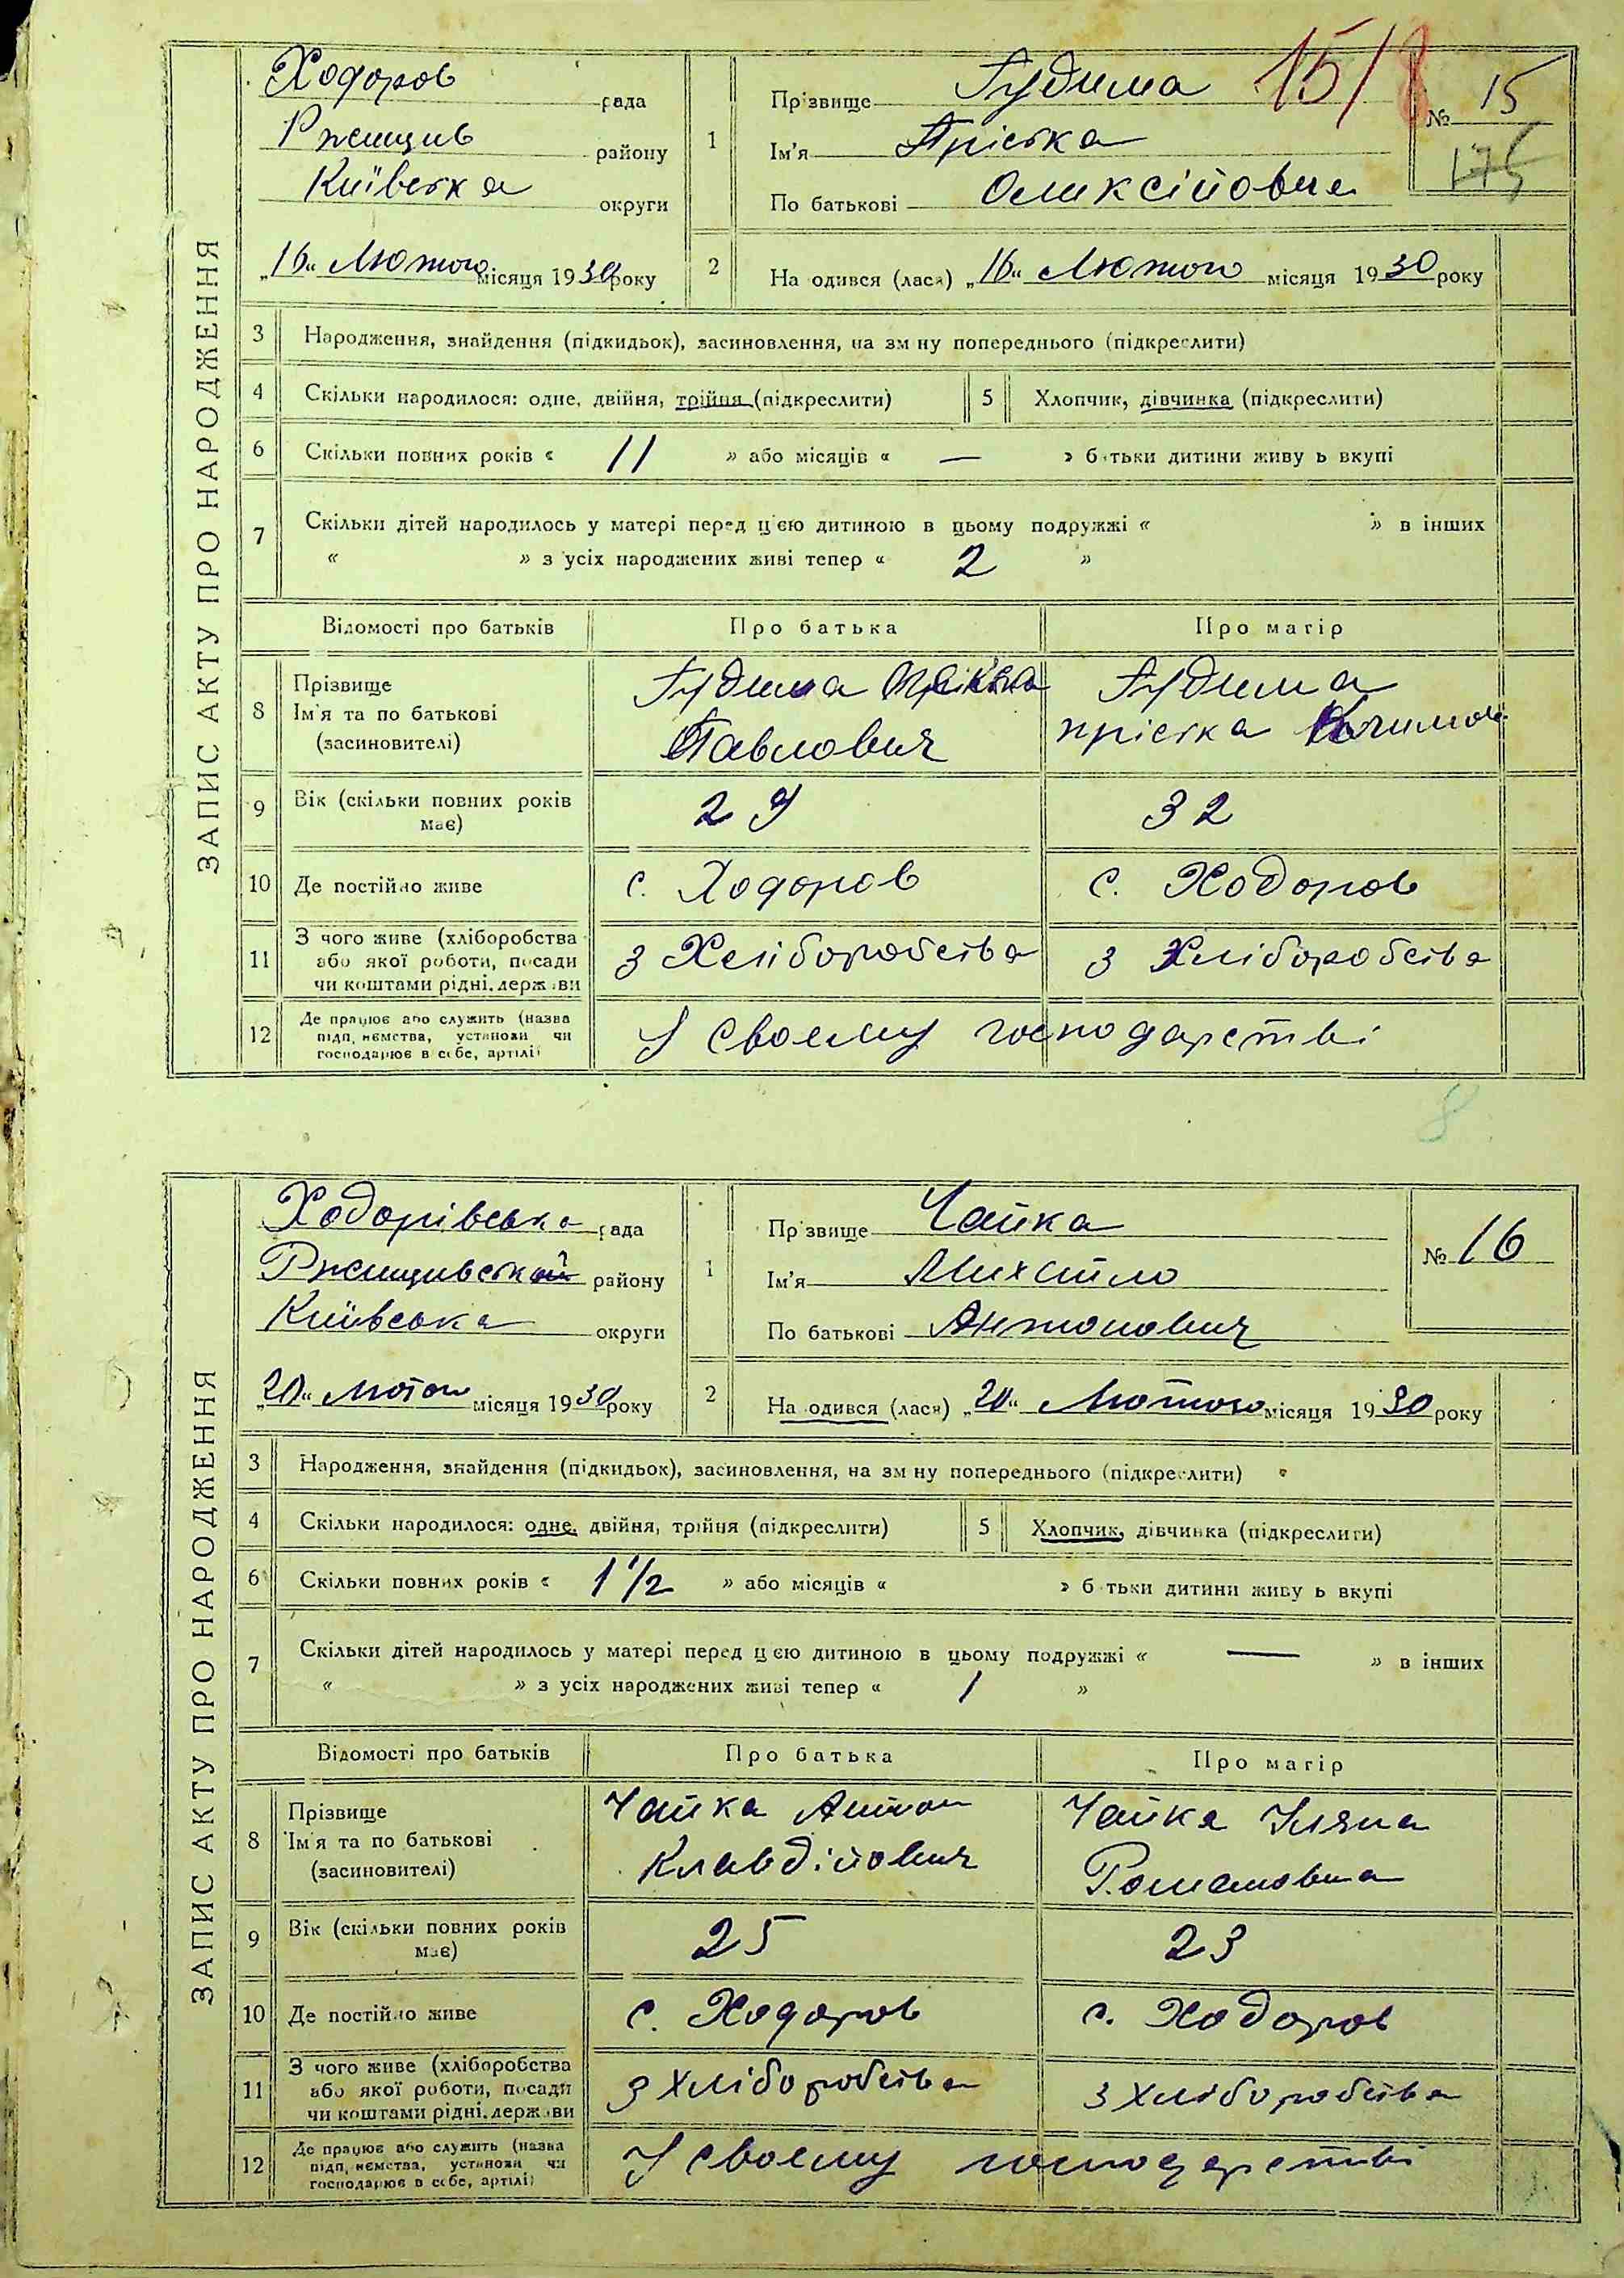 ЗАПИС АКТУ ПРО НАРОДЖЕННЯ
Ходоров рада
Ржищив району
Київська округи
„16“ Лютого місяця 1930 року
1 Прізвище Гудима
Ім'я Пріська
По батькові Оликсійовна
15/8
№ 15
175
2 На одився (лася) „16“ Лютого місяця 1930 року
3 Народження, знайдення (підкидьок), засиновлення, на зм ну попереднього (підкреслити)
4 Скільки народилося: одне, двійня, трійня (підкреслити) 5 Хлопчик, дівчинка (підкреслити)
6 Скільки повних років « 11 » або місяців « — » б тьки дитини живу ь вкупі
7 Скільки дітей народилось у матері перед цією дитиною в цьому подружжі « » в інших
« » з усіх народжених живі тепер « 2 »
Відомості про батьків Про батька Про матір
8 Прізвище Ім'я та по батькові (засиновителі)
Гудима
Павлович
Гудима
пріська
9 Вік (скільки повних років має) 29 32
10 Де постійно живе с. Ходоров с. Ходоров
11 З чого живе (хліборобства або якої роботи, посади чи коштами рідні, держ ви З Хліборобства З Хліборобства
12 Де працює або служить (назва підп, немства, установи чи господарює в себе, артілі) У своєму господарстві
8
ЗАПИС АКТУ ПРО НАРОДЖЕННЯ
Ходорівська рада
Ржищивський району
Київська округи
„20“ Лютого місяця 1930 року
1 Прізвище Чайка
Ім'я Михайло
По батькові Антонович
№ 16
2 На одився (лася) „20“ Лютого місяця 1930 року
3 Народження, знайдення (підкидьок), засиновлення, на зм ну попереднього (підкреслити)
4 Скільки народилося: одне, двійня, трійня (підкреслити) 5 Хлопчик, дівчинка (підкреслити)
6 Скільки повних років « 1 1/2 » або місяців « » б тьки дитини живу ь вкупі
7 Скільки дітей народилось у матері перед цією дитиною в цьому подружжі « — » в інших
« » з усіх народжених живі тепер « 1 »
Відомості про батьків Про батька Про матір
8 Прізвище Ім'я та по батькові (засиновителі)
Чайка Антон
Клавдійович
Чайка Уляна
Романовна
9 Вік (скільки повних років має) 25 23
10 Де постійно живе с. Ходоров с. Ходоров
11 З чого живе (хліборобства або якої роботи, посади чи коштами рідні, держ ви З Хліборобства З Хліборобства
12 Де працює або служить (назва підп, немства, установи чи господарює в себе, артілі) У своєму господарстві